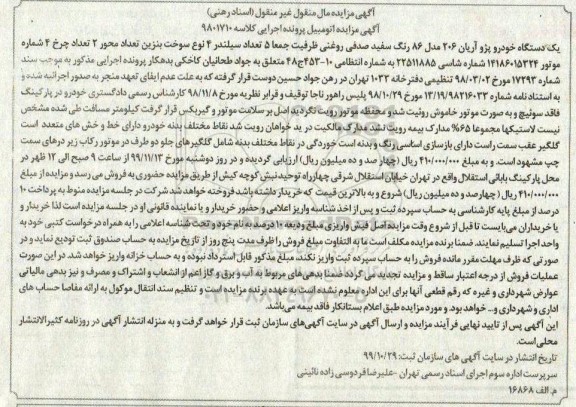 آگهی مزایده مال منقول غیر منقول (اسناد رهنی)
آگهی مزایده اتومبیل پرونده اجرایی کلاسه ۹۸۰۱۷۱۰
یک دستگاه خودرو پژو آریان ۲۰۶ مدل ۸۶ رنگ سفید صدفی روغنی ظرفیت جمعا ۵ تعداد سیلندر ۴ نوع سوخت بنزین تعداد محور ۲ تعداد چرخ ۴ شماره
موتور ۱۴۱۸۶۰۱۵۳۲۴ شماره شاسی ۲۲۵۱۱۸۸۵ به شماره انتظامی ۱۰-۴۵۳ج۴۸ متعلق به جواد طحانیان کاخکی بدهکار پرونده اجرایی مذکور به موجب سند
شماره ۱۷۲۹۳ مورخ ۹۸/۰۳/۰۲ تنظیمی دفترخانه ۱۰۳۳ تهران در رهن جواد حسین دوست قرار گرفته که به علت عدم ایفای تعهد منجر به صدور اجرائیه شده و
به استناد نامه شماره ۱۳/۱۹/۹۸۲۱۶۰۳۳ مورخ ۹۸/۱۰/۲۹ پلیس راهور ناجا توقیف و قرار نظریه مورخ ۹۸/۱۱/۸ کارشناس رسمی دادگستری خودرو در پارکینگ
فاقد سوئیچ و به صورت موتور خاموش رونیت شد و محفظه موتور رویت نگردید اصل بر سلامت موتور و گیربکس قرار گرفت کیلومتر مسافت طی شده مشخص
نیست لاستیکها مجموعا ۶۵% مدارک بیمه رویت نشد مدارک مالکیت در ید خواهان رویت شد نقاط مختلف بدنه خودرو دارای خط و خش های متعدد است
گلگیر عقب سمت راست دارای بازسازی اساسی رنگ و بدنه است خوردگی در نقاط مختلف بدنه شامل گلگیرهای جلو دو طرف در موتور رکاب زیر درهای سمت
چپ مشهود است. و به مبلغ ۴۱۰/۰۰۰/۰۰۰ ریال (چهارصد و ده میلیون ریال) ارزیابی گردیده و در روز دوشنبه مورخ ۹۹/۱۱/۱۳ از ساعت ۹ صبح الی ۱۲ ظهر در
محل پارکینگ بابائی استقلال واقع در تهران خیابان استقلال شرقی چهارراه توحید نبش کوچه کیش از طریق مزایده حضوری به فروش می رسد و مزایده از مبلغ
۴۱۰/۰۰۰/۰۰۰ ریال (چهارصد و ده میلیون ریال) شروع و به بالاترین قیمت که خریدار داشته باشد فروخته خواهد شد شرکت در جلسه مزایده منوط به پرداخت ۱۰
درصد از مبلغ پایه کارشناسی به حساب سپرده ثبت و پس از اخذ شناسه واریز اعلامی و حضور خریدار و یا نماینده قانونی او در جلسه مزایده است لذا خریدار و
یا خریداران می‌بایست تا قبل از شروع وقت مزایده اصل فیش واریزی مبلغ ودیعه ۱۰ درصد به نام خود و تحت شناسه اعلامی را به همراه درخواست کتبی خود به
واحد اجرا تسلیم نمایند. ضمنا برنده مزایده مکلف است ما به التفاوت مبلغ فروش را ظرف مدت پنج روز از تاریخ مزایده به حساب صندوق ثبت تودیع نماید و در
صورتی که ظرف مهلت مقرر مانده فروش را به حساب سپرده ثبت واریز نکند، مبلغ مذکور قابل استرداد نبوده و به حساب خزانه واریز خواهد شد. در این صورت
عملیات فروش از درجه اعتبار ساقط و مزایده تجدید می گردد ضمنا بدهی‌های مربوط به آب و برق و گاز اعم از انشعاب و اشتراک و مصرف و نیز بدهی مالیاتی
عوارض شهرداری و غیره که رقم قطعی آنها برای این اداره معلوم نشده است به عهده برنده مزایده است و تنظیم سند انتقال موکول به ارائه مفاصا حساب های
اداری و شهرداری و... خواهد بود. و مورد مزایده طبق اعلام بستانکار فاقد بیمه می‌باشد.
این آگهی پس از تایید نهایی فرآیند مزایده و ارسال آگهی در سایت آگهی‌های سازمان ثبت قرار خواهد گرفت و به منزله انتشار آگهی در روزنامه کثیرالانتشار
محلی است.
تاریخ انتشار در سایت آگهی های سازمان ثبت: ۹۹/۱۰/۲۹
سرپرست اداره سوم اجرای اسناد رسمی تهران - علیرضا فردوسی زاده نائینی
م. الف ۱۶۸۶۸